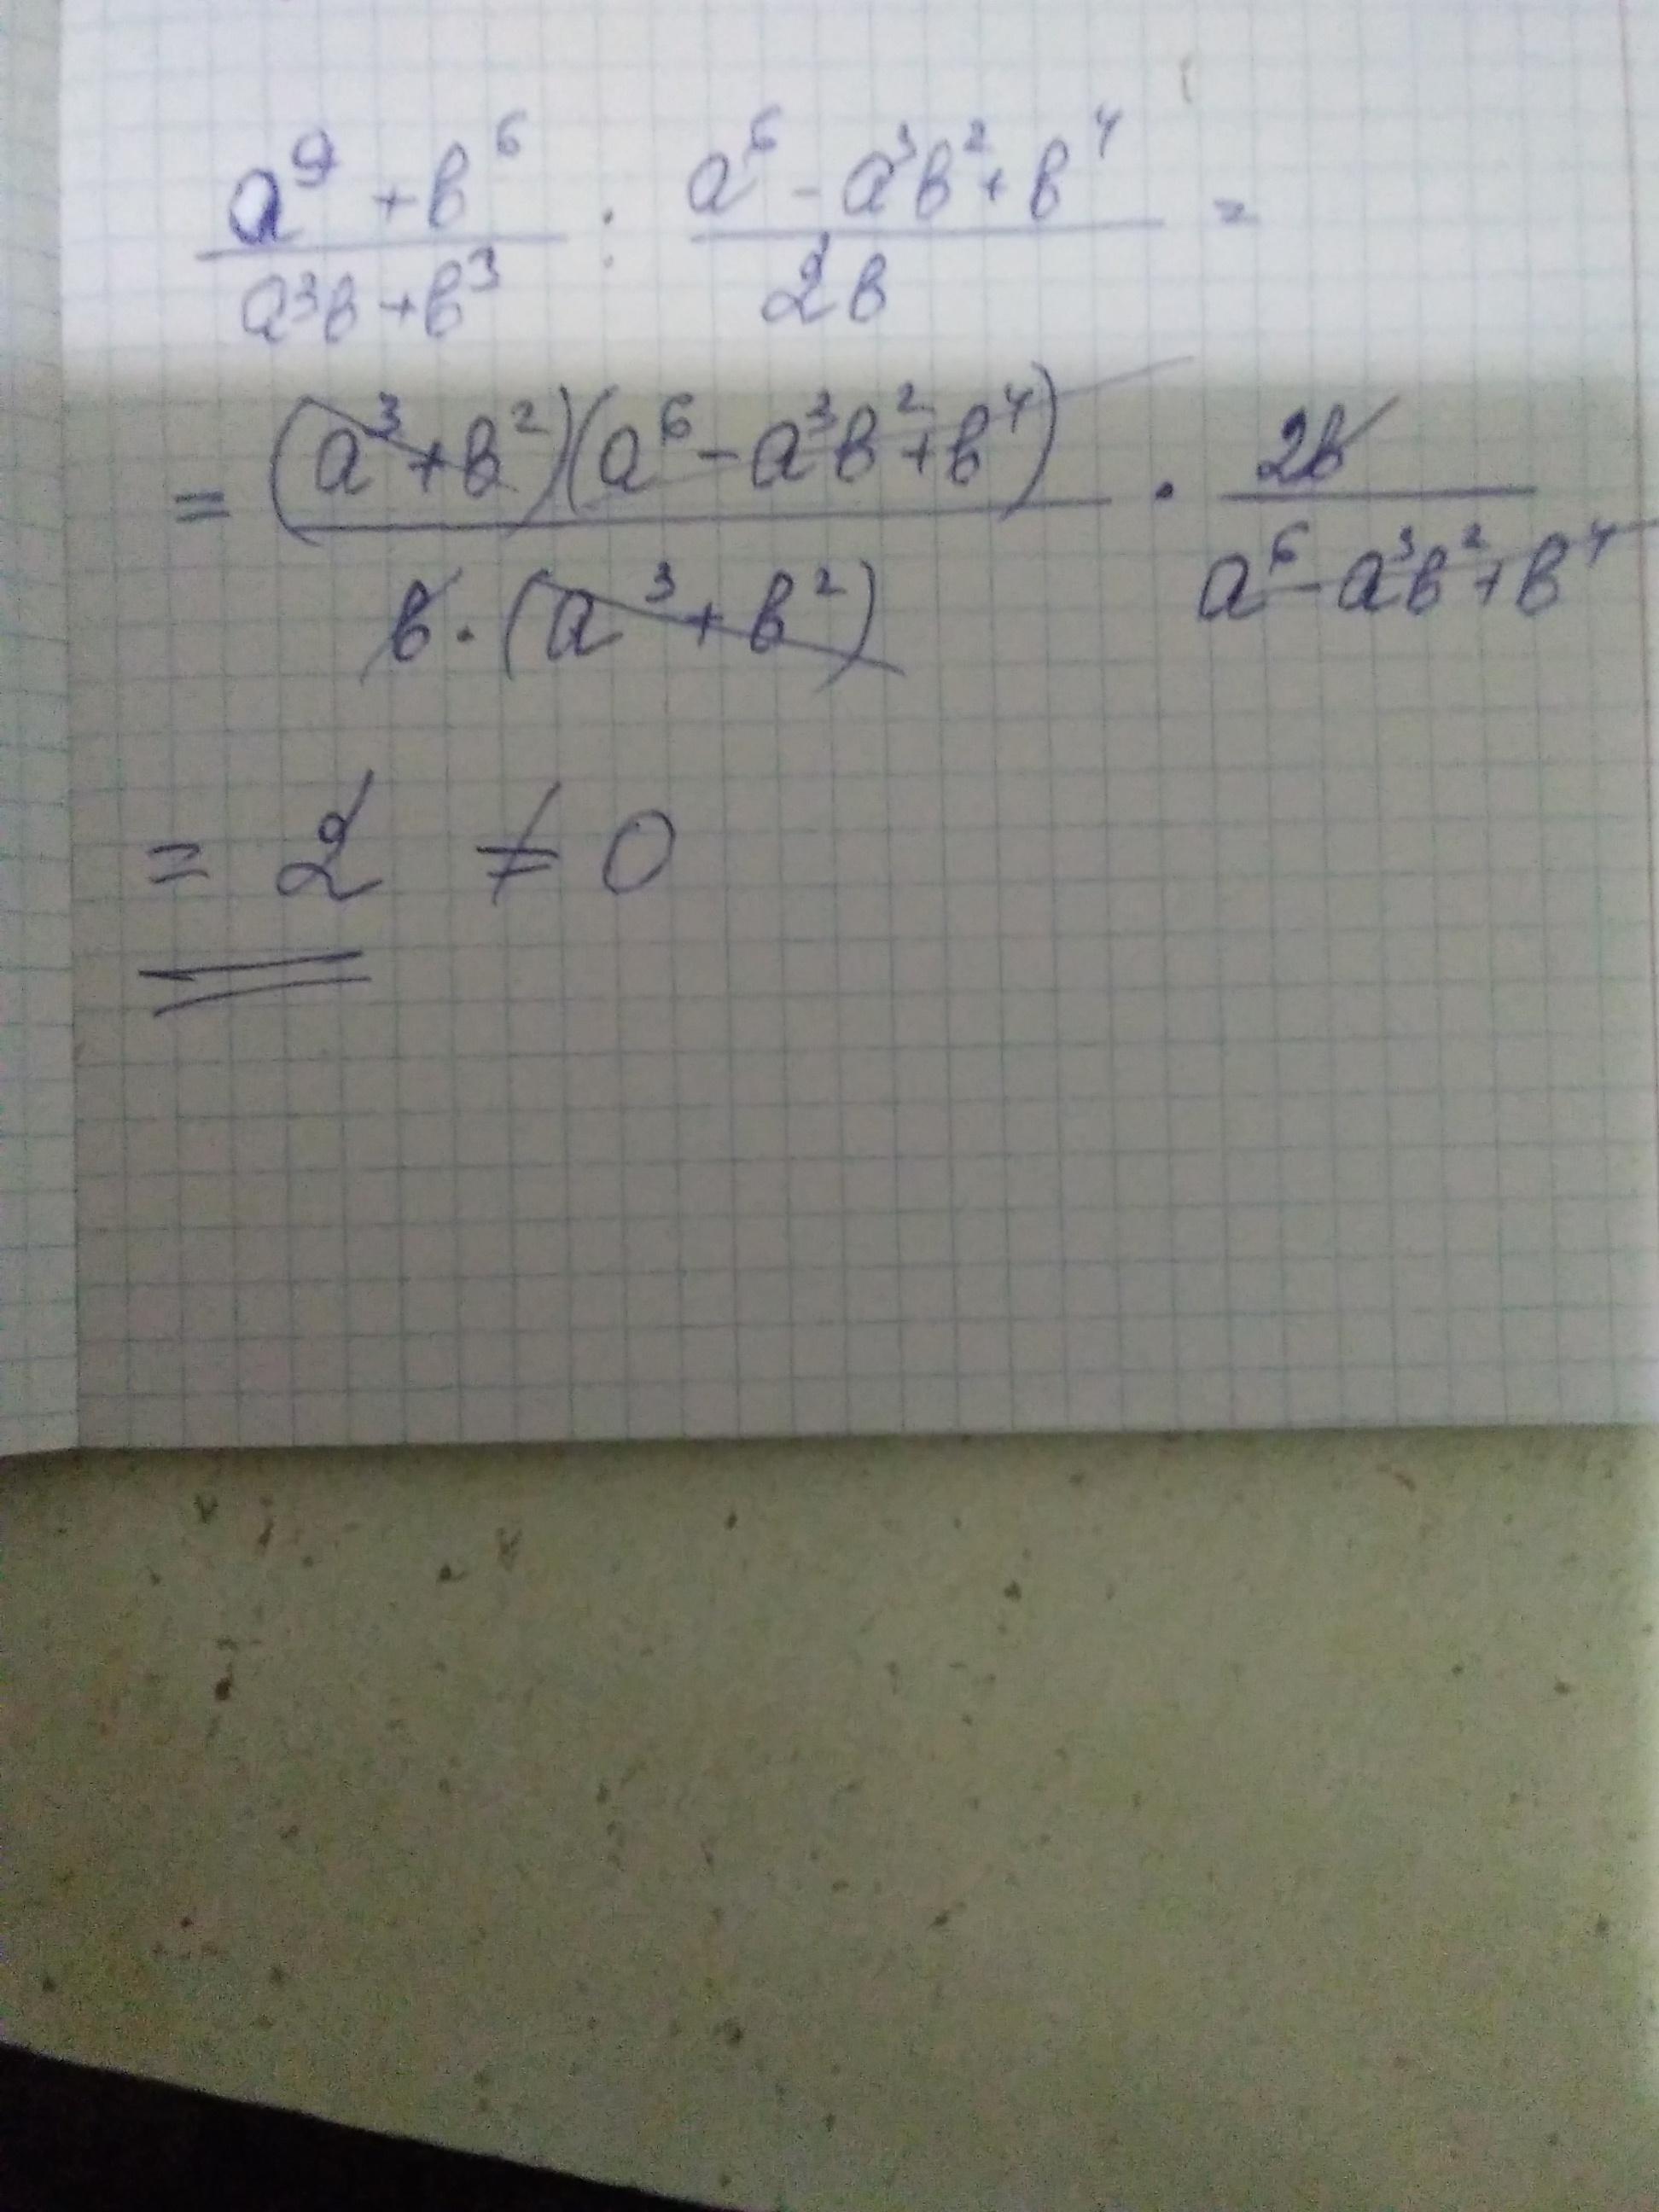 a⁹ + b⁶ / a³b + b³ : a⁶ - a³b² + b⁴ / 2b =
= (a³ + b²)(a⁶ - a³b² + b⁴) / b · (a³ + b²) · 2b / a⁶ - a³b² + b⁴
= 2 ≠ 0